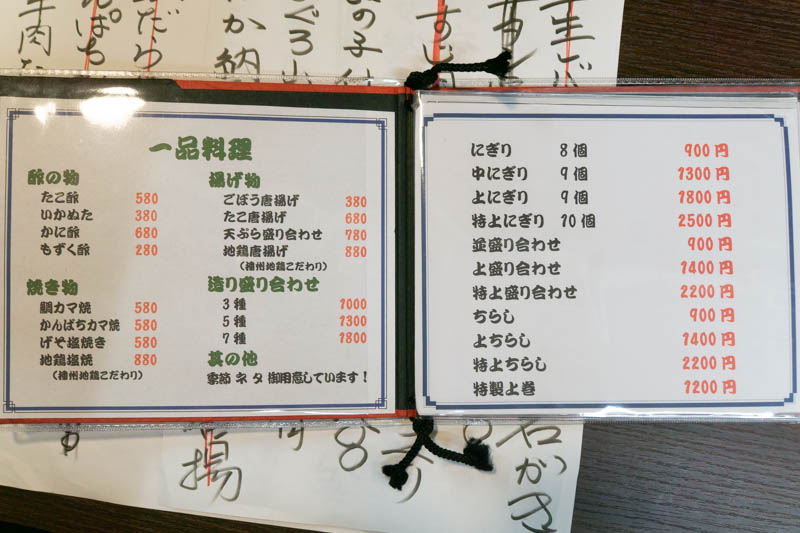 一品料理
酢の物
たこ酢 580
いかぬた 380
かに酢 680
もずく酢 280
焼き物
鯛カマ焼 580
かんぱちカマ焼 580
げそ塩焼き 580
地鶏塩焼 880
(播州地鶏こだわり)
揚げ物
ごぼう唐揚げ 380
たこ唐揚げ 680
天ぷら盛り合わせ 780
地鶏唐揚げ 880
(播州地鶏こだわり)
造り盛り合わせ
3種 1000
5種 1300
7種 1800
其の他
季節ネタ御用意しています!
にぎり 8個 900円
中にぎり 9個 1300円
上にぎり 9個 1800円
特上にぎり 10個 2500円
並盛り合わせ 900円
上盛り合わせ 1400円
特上盛り合わせ 2200円
ちらし 900円
上ちらし 1400円
特上ちらし 2200円
特製上巻 1200円